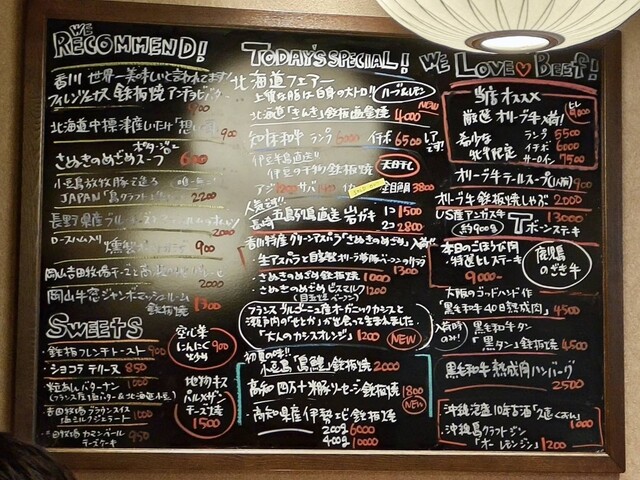 WE
RECOMMEND!
香川 世界一美味しいと言われてます!
鉄板焼 アンチョビバター
900
北海道中標津産しいたけ「想いの茸」
900
ポタージュ
さぬきのめざめスープ 600
小豆島放牧豚で造る 唯一
JAPAN「島グラフト」 2200
長野県産
2000
ロースハム入り 燻製 900
岡山吉田牧場チーズと 2000
岡山牛窓ジャンボマッシュルーム
鉄板焼 1300
SWEETS
・鉄板フレンチトースト 900
・ショコラ テリーヌ 850
・粒あんバターナン 1000
(フランス産 バター & 北海道小豆)
・吉田牧場ブラウンスイス
塩ミルクジェラート 1000
・吉田牧場カマンベール
チーズケーキ 950
空心菜
にんにく
炒め
900
地物ネギ
パルメザン
チーズ焼
1500
TODAY'S SPECIAL!
北海道フェアー
上質な脂は白身の大トロ!!
NEW
北海道「きんき」鉄板塩釜焼 4000
知床和牛 ランプ 6000 イチボ 6500 レアです!
伊豆半島直送!!
伊豆の干物鉄板焼 天日干し
アジ サバ 金目鯛 3800
人気です!!
長崎 五島列島直送 岩ガキ 1コ 1500
2コ 2800
香川特産 グリーンアスパラ「さぬきのめざめ」入荷!!
・生アスパラと自家製オリーブ豚ベーコングリル 1300
・さぬきのめざめ鉄板焼 1000
・さぬきのめざめビスマルク 1200
(自家製ベーコン)
フランス ブルゴーニュ産オーガニックカシスと
瀬戸内の「せとか」が出会って生まれました.
「大人のカシスオレンジ」1200 NEW
初夏の味!!
小豆島「島鱧」鉄板焼 2000
高知 四万十豚ソーセージ鉄板焼 1800
NEW
・高知県産 伊勢エビ鉄板焼
200g 6000
400g 10000
WE LOVE♥BEEF!
当店オススメ
厳選 オリーブ牛入荷!
希少な
牝牛限定
ヒレ 9000
ランプ 5500
イチボ 6000
サーロイン 7500
オリーブ牛テールスープ(1人前) 900
オリーブ牛鉄板焼しゃぶ 2000
US産アンガス牛 13000
約900g Tボーンステーキ
本日のごほうび肉
・特選ヒレステーキ
9000-
鹿児島
のざき牛
大阪のゴッドハンド作
「黒毛和牛40日熟成肉」4500
入荷時のみ! 黒毛和牛タン
「黒タン」鉄板焼 4500
黒毛和牛 熟成肉ハンバーグ
2500
沖縄泡盛10年古酒「久遠くおん」
1000
・沖縄島クラフトジン
「オーレモンジン」1200